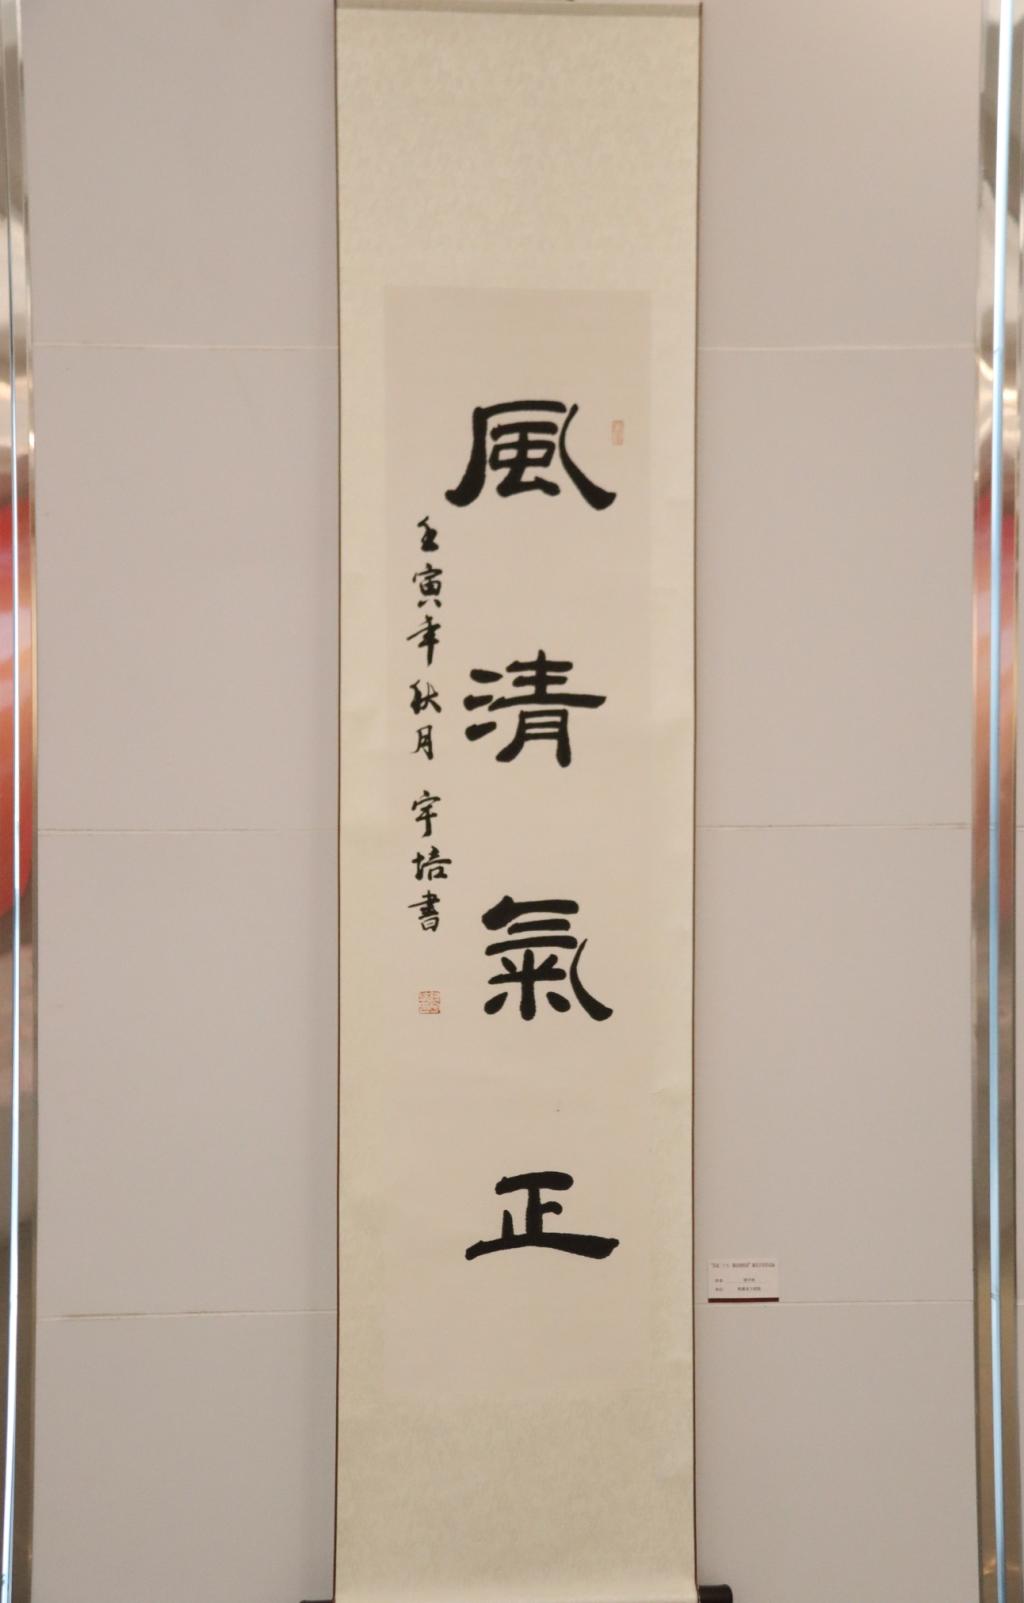 風清氣正
壬寅年秋月 宇培書